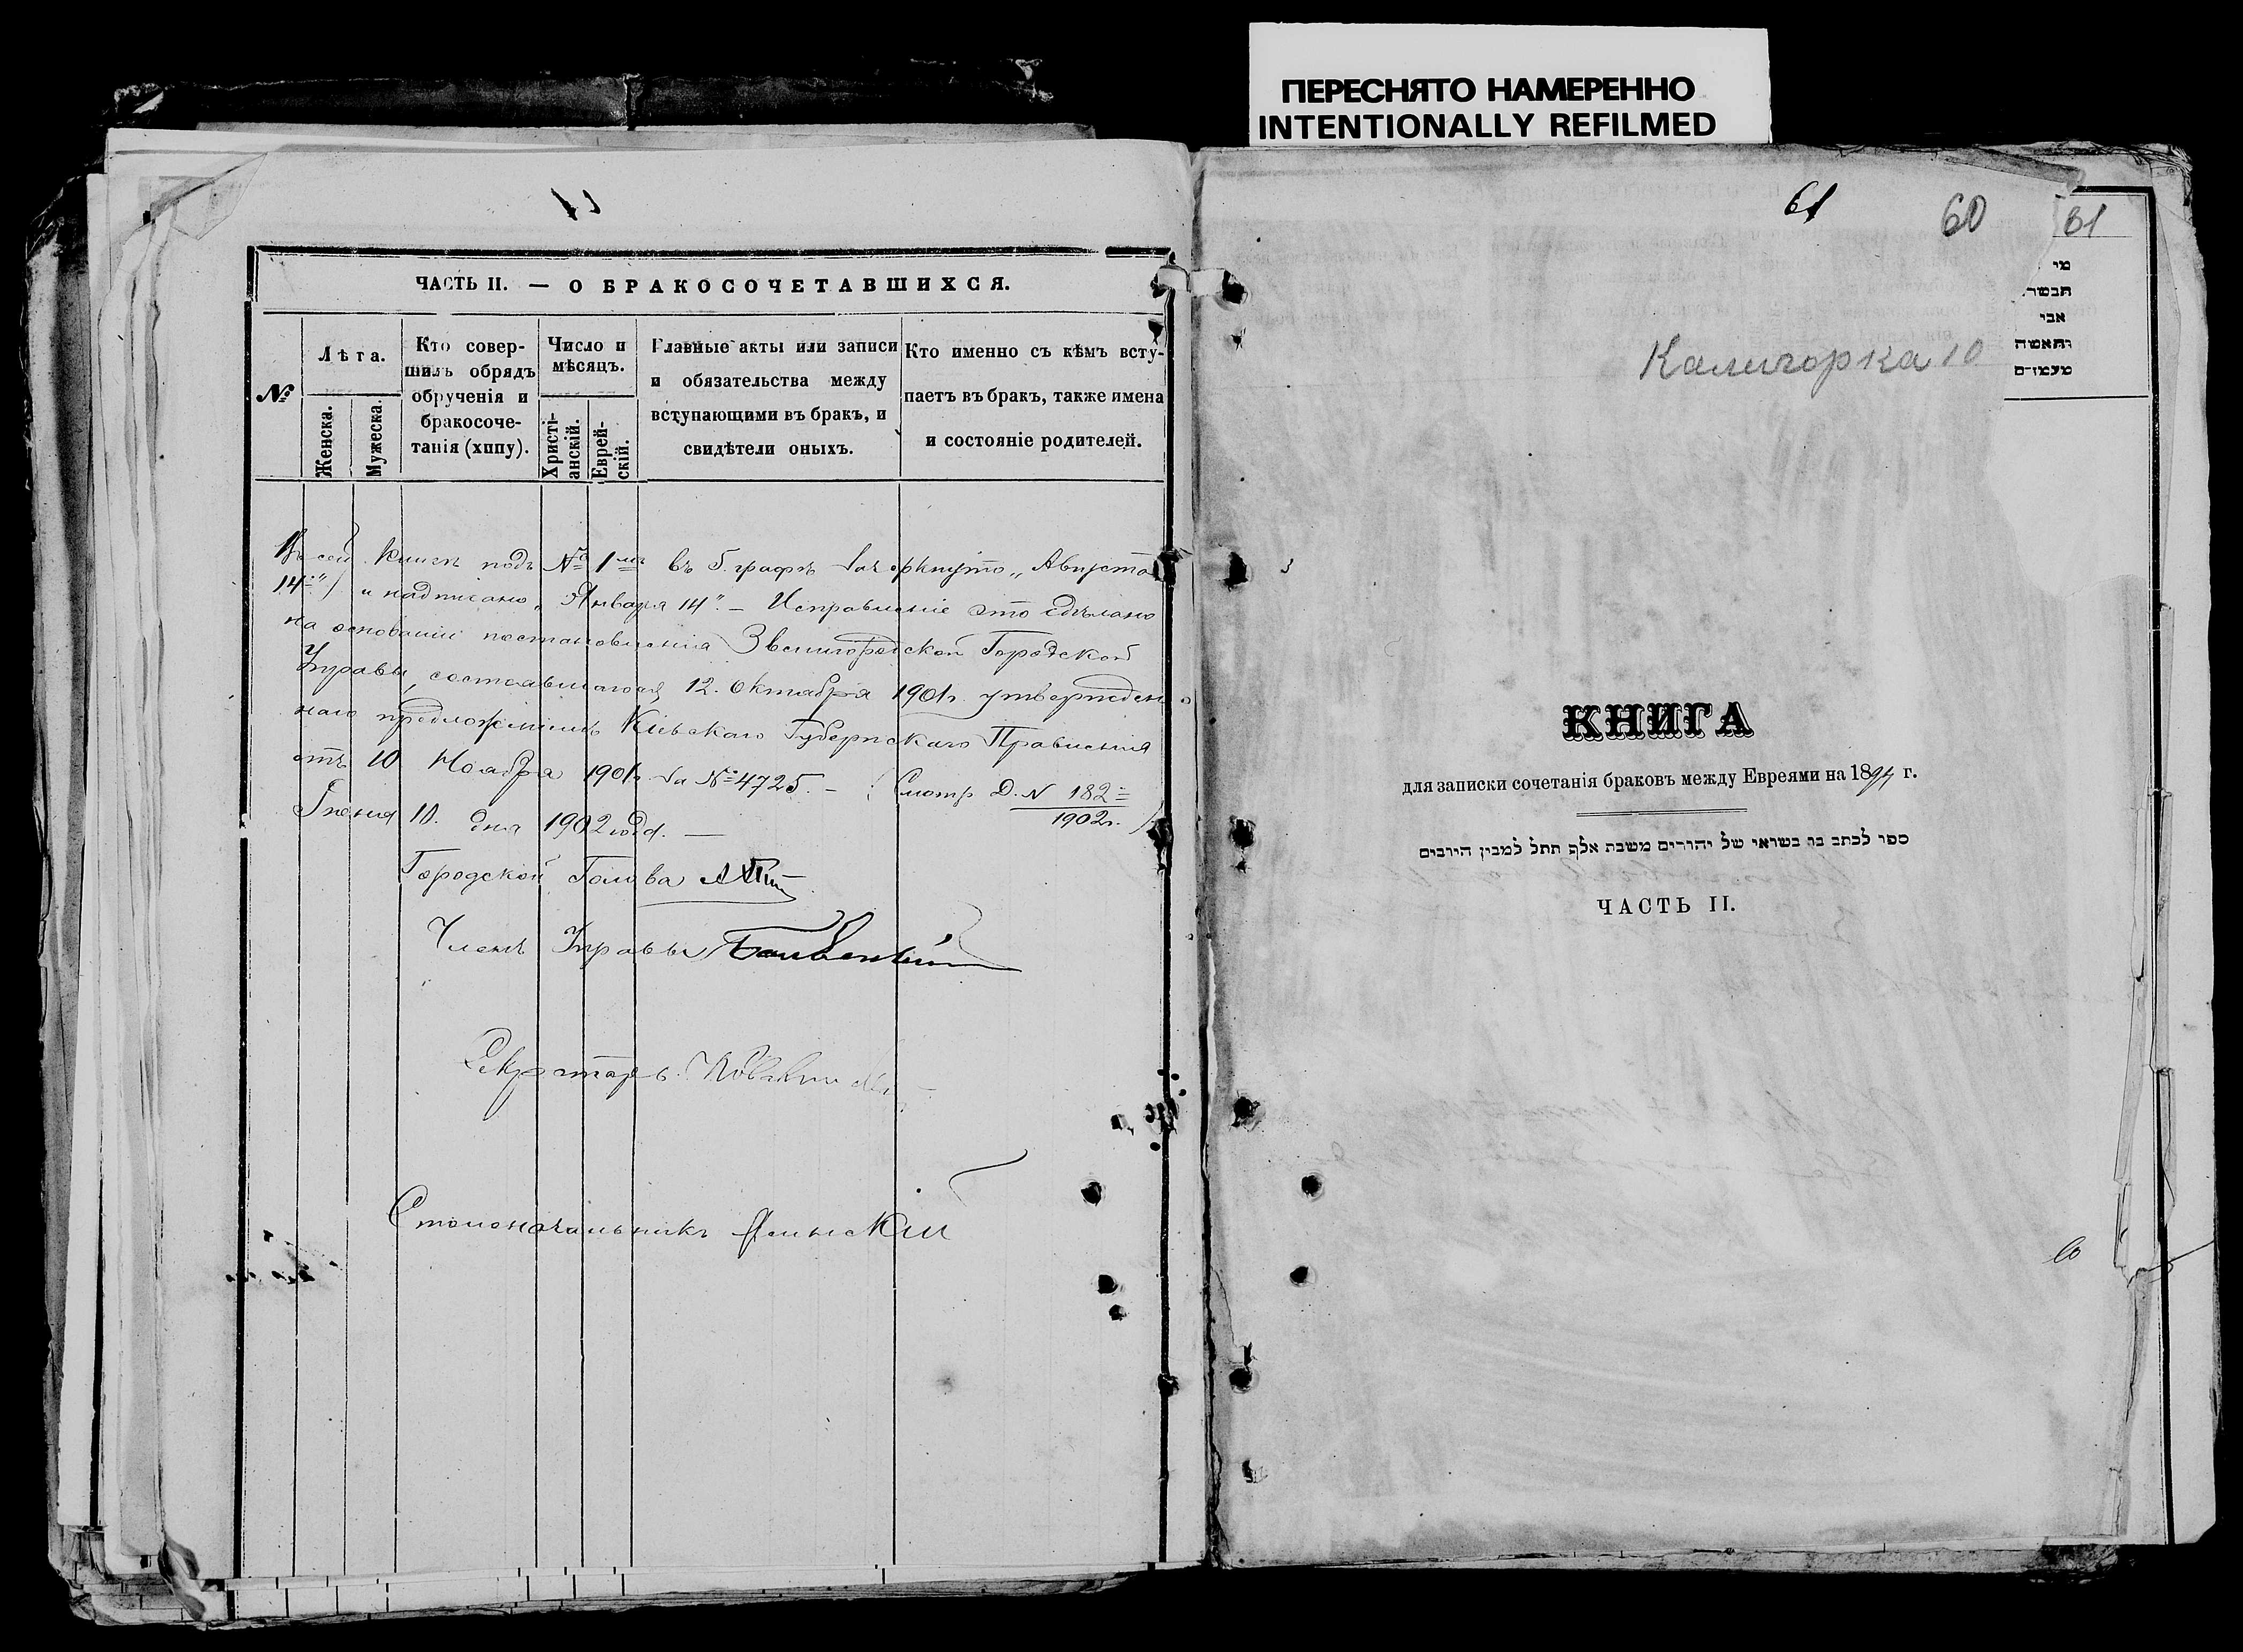 ПЕРЕСНЯТО НАМЕРЕННО
INTENTIONALLY REFILMED
ЧАСТЬ II. — О БРАКОСОЧЕТАВШИХСЯ.
№
Лѣта.
Женска.
Мужеска.
Кто совер-
шилъ обрядъ
обрученія и
бракосоче-
танія (хппу).
Число и
мѣсяцъ.
Христі-
анскій.
Еврей-
скій.
Главные акты или записи
и обязательства между
вступающими въ бракъ, и
свидѣтели оныхъ.
Кто именно съ кѣмъ всту-
паетъ въ бракъ, также имена
и состояніе родителей.
Въ сей книгѣ подъ № 1мъ въ 5. графѣ зачеркнуто „Августа
14" и надписано „Января 14". — Исправленіе это сдѣлано
на основаніи постановленія Звенигородской Городской
Управы, состоявшагося 12. Октября 1901г. утвержден
наго предложеніемъ Кіевскаго Губернскаго Правленія
отъ 10 Ноября 1901г. за № 4725. — (Смотр. Д. N 182
1902г.)
10. дня 1902 года. —
Городской Голова
Членъ Управы
Секретарь
Столоначальникъ
61
60
81
מי
אבי
והאשה
Калигорка 10
КНИГА
для записки сочетанія браковъ между Евреями на 1894 г.
ספר לכתב בו בשואי של יהורים משבת אלף תתל למבין היובים
ЧАСТЬ II.